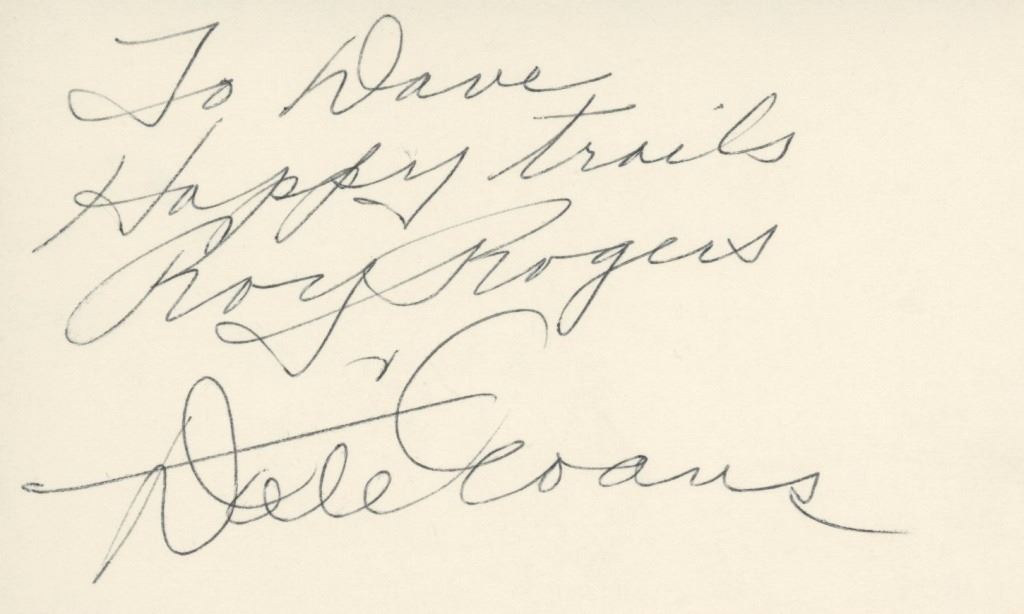 To Dave
Happy trails
Roy Rogers
&
Dale Evans